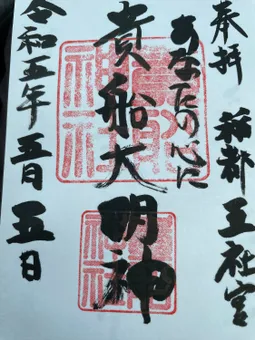 奉拝 稲都 王社宮
あなたの心に
貴船大明神
令和五年 五月 五日